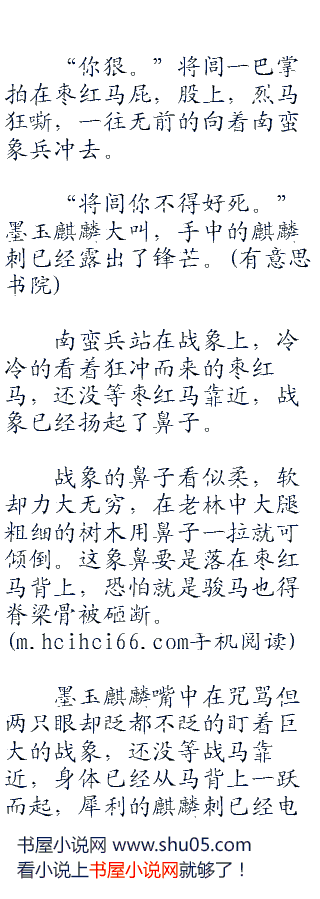 “你狠。”将闾一巴掌
拍在枣红马屁，股上，烈马
狂嘶，一往无前的向着南蛮
象兵冲去。
“将闾你不得好死。”
墨玉麒麟大叫，手中的麒麟
刺已经露出了锋芒。(有意思
书院)
南蛮兵站在战象上，冷
冷的看着狂冲而来的枣红
马，还没等枣红马靠近，战
象已经扬起了鼻子。
战象的鼻子看似柔，软
却力大无穷，在老林中大腿
粗细的树木用鼻子一拉就可
倾倒。这象鼻要是落在枣红
马背上，恐怕就是骏马也得
脊梁骨被砸断。
(m.hcihci66.com手机阅读)
墨玉麒麟嘴中在咒骂但
两只眼却眨都不眨的盯着巨
大的战象，还没等战马靠
近，身体已经从马背上一跃
而起，犀利的麒麟刺已经电
书屋小说网 www.shu05.com
看小说上书屋小说网就够了！